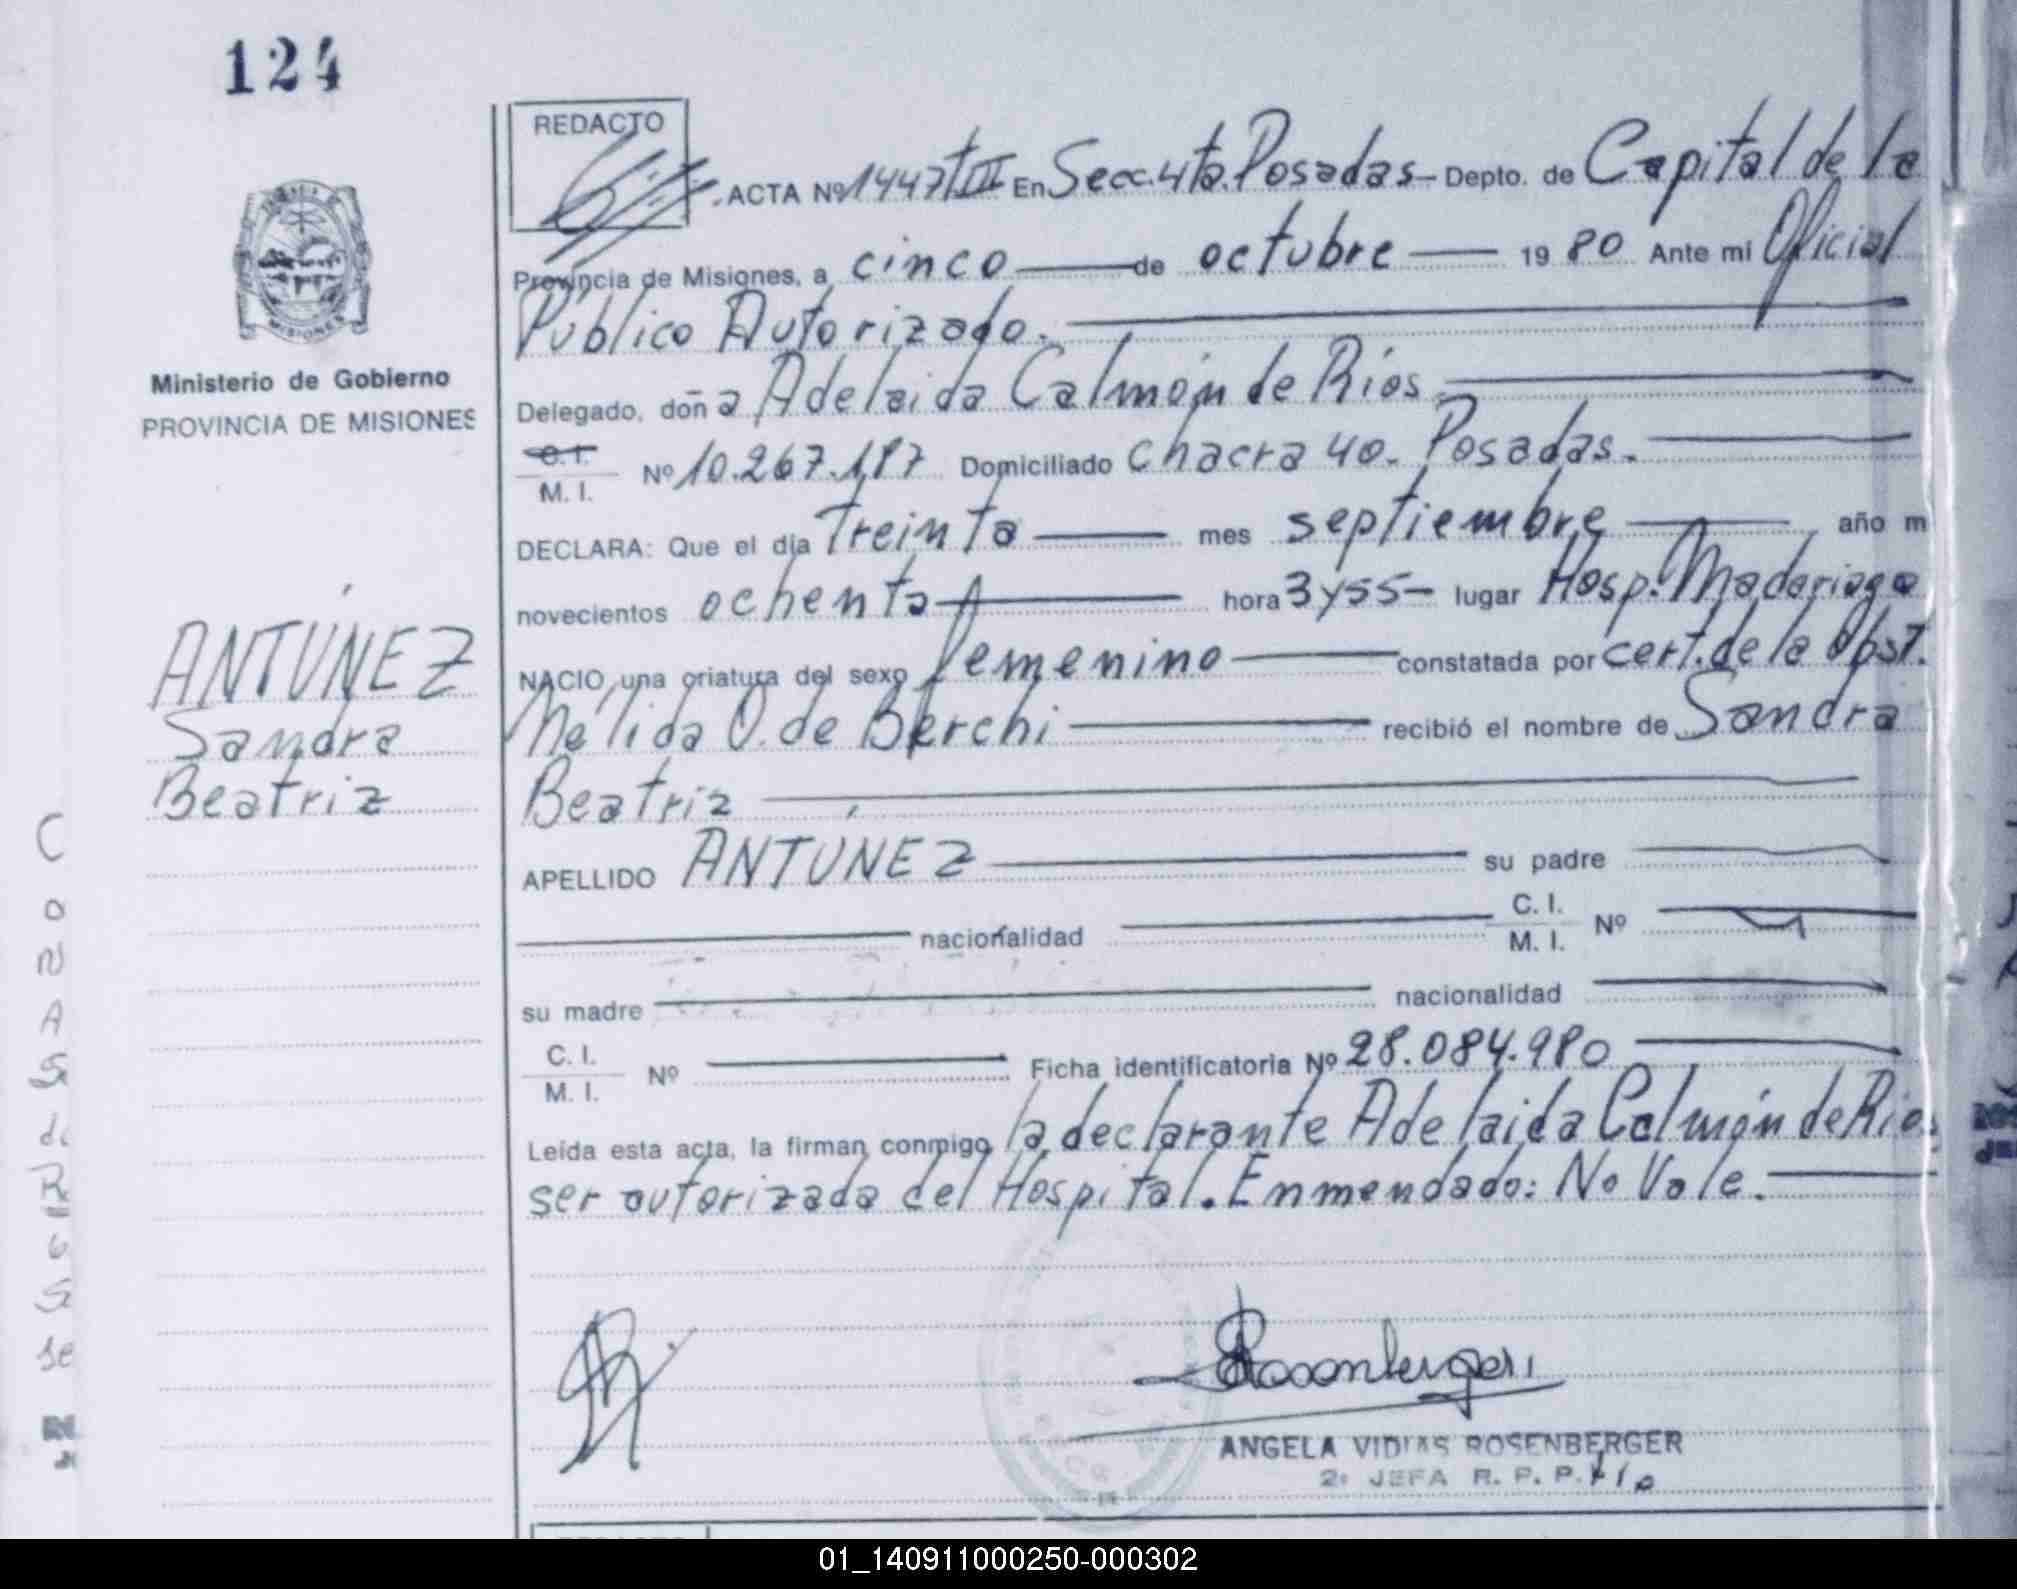 124
REDACTO
ACTA Nº 1447 TIII En Secc. 4ta. Posadas - Depto. de Capital de la
Provincia de Misiones, a cinco de octubre 1980 Ante mi Oficial
Público Autorizado.
Ministerio de Gobierno
PROVINCIA DE MISIONES
Delegado, doña Adelaida Calmón de Ríos
C. I.
M. I. Nº 10.267.187 Domiciliado Chacra 40. Posadas.
DECLARA: Que el día Treinta mes septiembre año m
novecientos ochenta hora 3 y 55 - lugar Hosp. Madariaga
NACIO una criatura del sexo femenino constatada por cert. de la Obst.
Nélida O. de Berchi recibió el nombre de Sandra
Beatriz
ANTÚNEZ
Sandra
Beatriz
APELLIDO ANTÚNEZ su padre
nacionalidad C. I.
M. I. Nº
su madre nacionalidad
C. I.
M. I. Nº Ficha identificatoria Nº 28.084.980
Leída esta acta, la firman conmigo la declarante Adelaida Calmón de Ríos
ser autorizada del Hospital. Enmendado: No Vale.
Rosenberger
ANGELA VIDIAS ROSENBERGER
2º JEFA R. P. P.
01_140911000250-000302